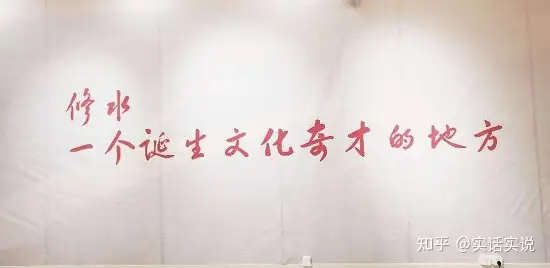 修水
一个诞生文化奇才的地方
知乎 @实话实说